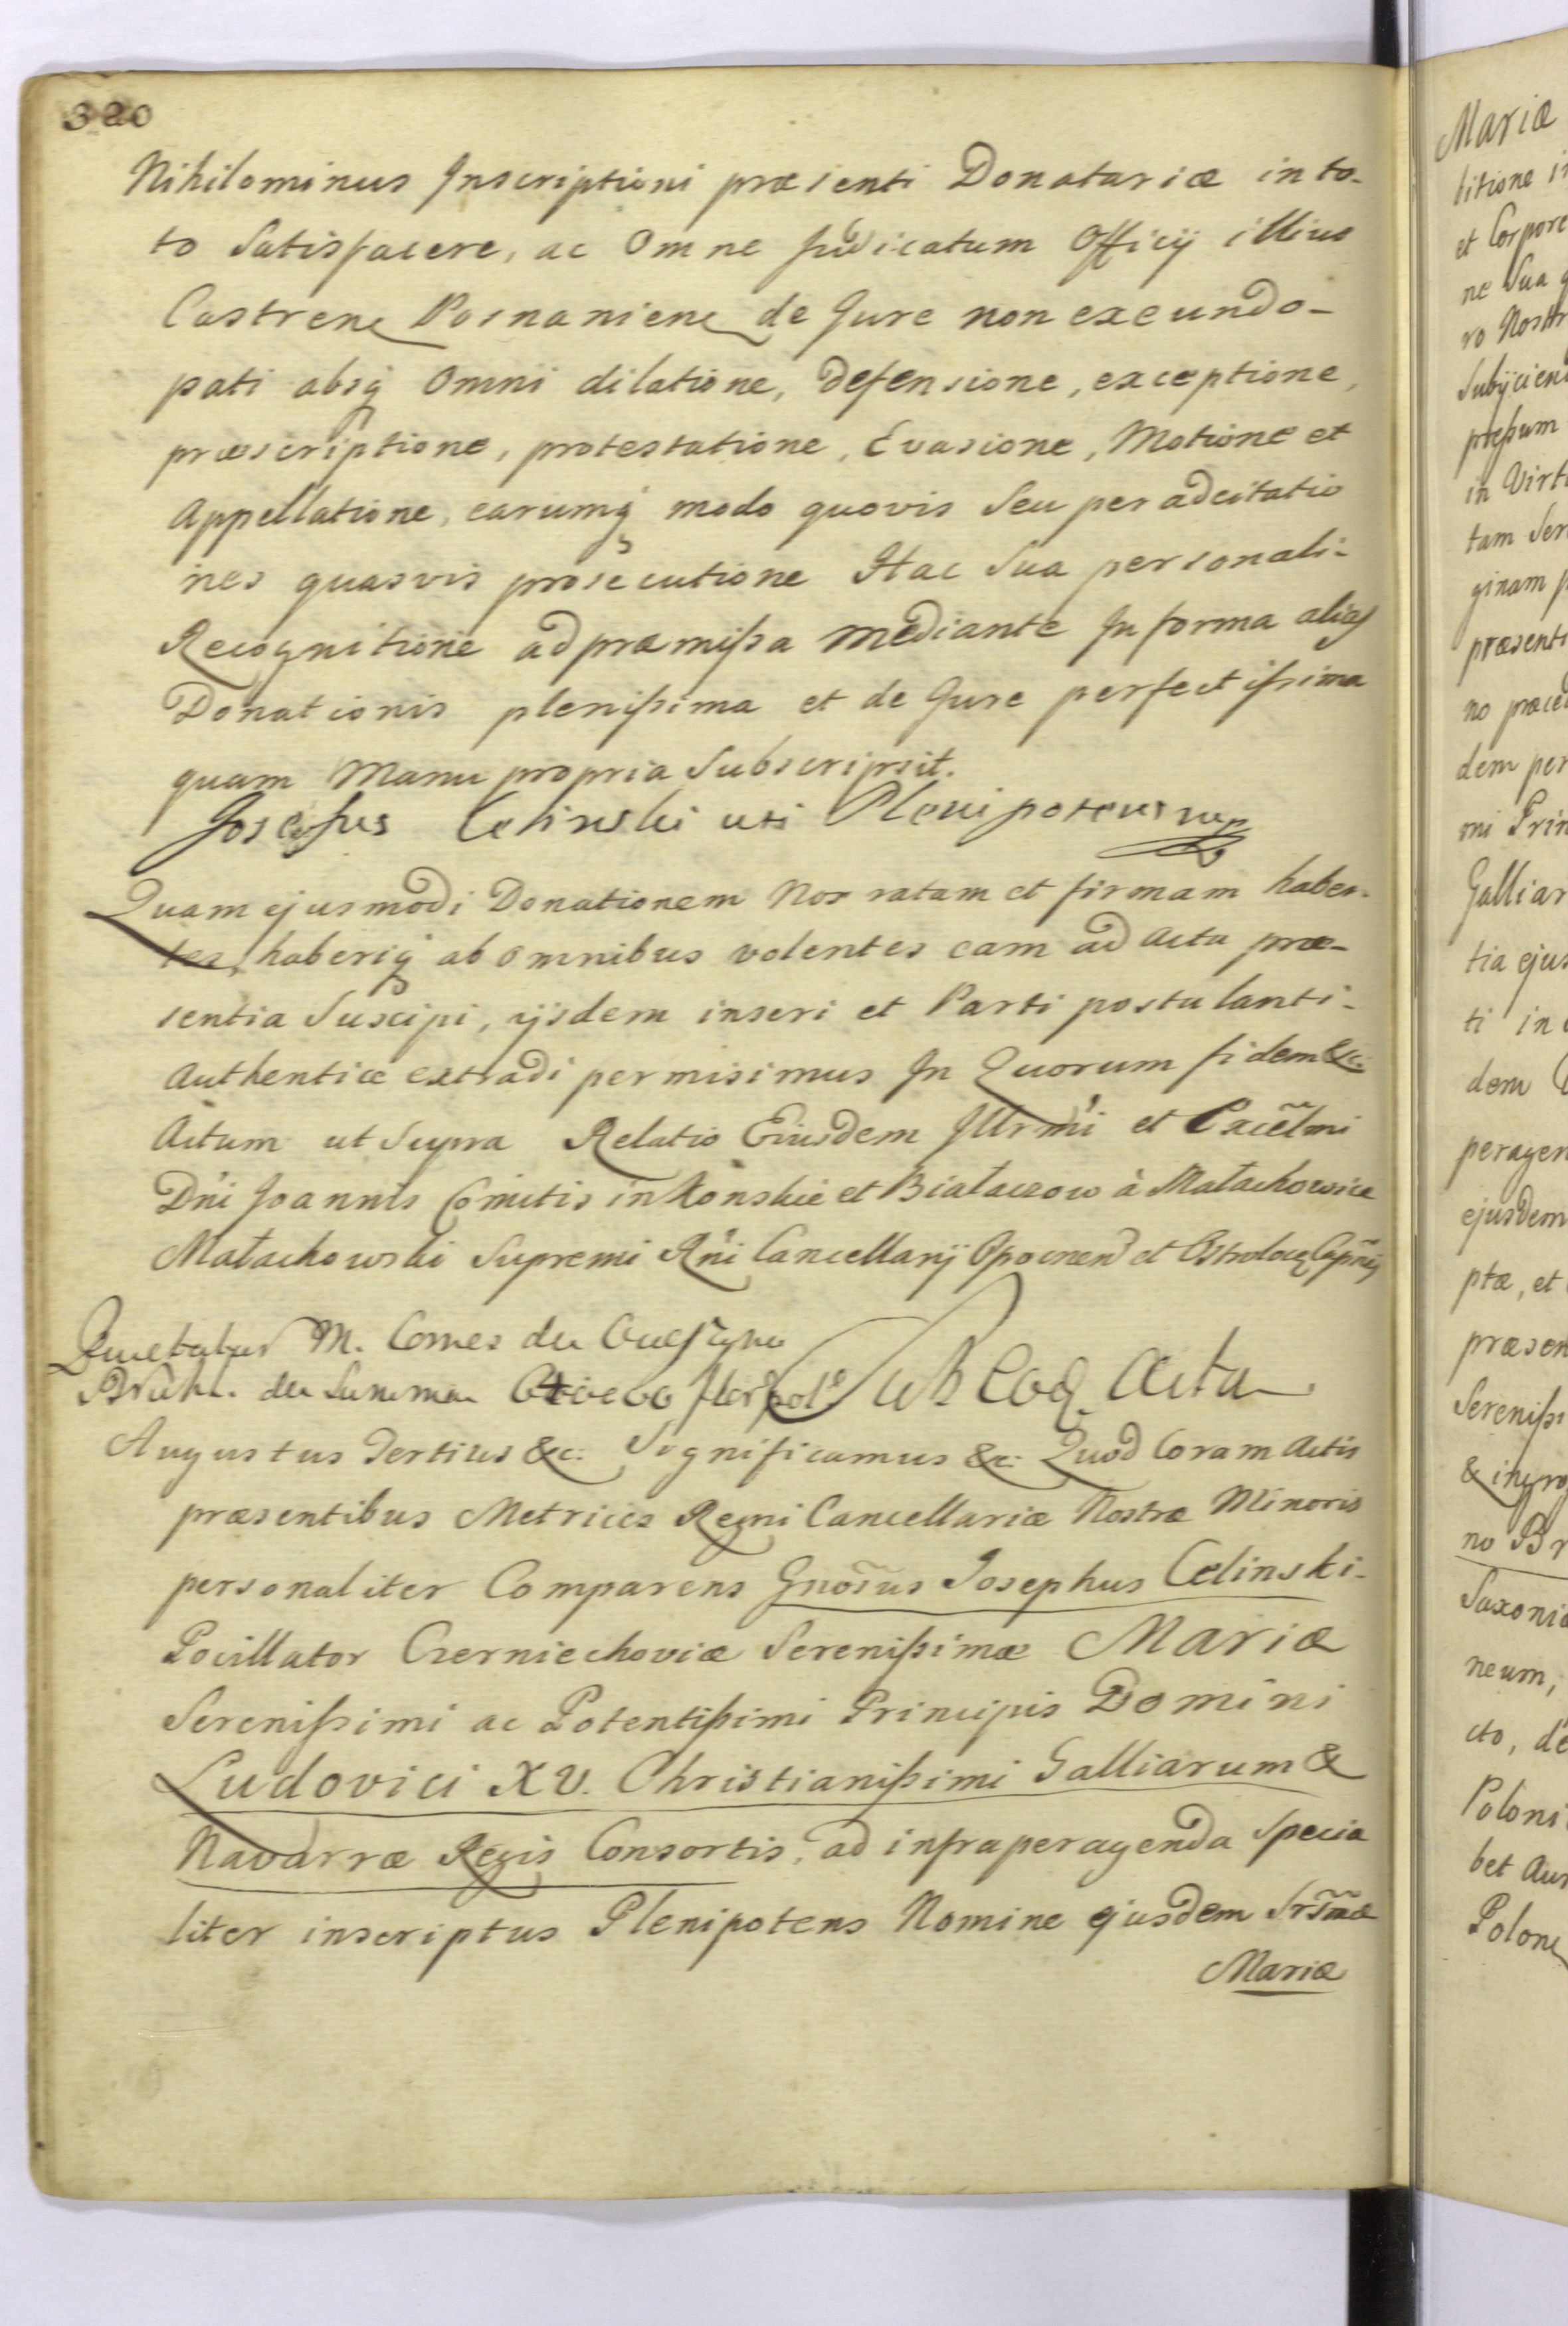 320
Nihilominus Inscriptioni præsenti Donatariæ in to-
to Satisfacere, ac Omne Judicatum Officij illius
Castren Posnanien de Jure non exeundo-
pati absq Omni dilatione, defensione, exceptione,
præscriptione, protestatione, Evasione, Motione et
Appellatione, earumq modo quovis Seu per adcitatio
nes quasvis prosecutione Hac Sua personali-
Recognitione ad præmißa mediante In forma alias
Donationis plenißima et de Jure perfectißima
quam Manu propria Subscripsit.
Josephus Celinski uti Plenipotens mp
Quam ejusmodi Donationem Nos ratam et firmam haben-
tes, haberiq ab omnibus volentes eam ad Acta præ-
sentia Suscipi, ijsdem inseri et Parti postulanti-
Authentice extradi permisimus In Quorum fidem &c.
Actum ut Supra Relatio Ejusdem Illrmi et Excellmi
Dni Joannis Comitis in Konskie et Białaczow à Małachowice
Małachowski Supremi Rni Cancellarij Opocnen et Ostrolec Cpnei
Quietatur M. Comes de
Brühl. de Summa
Sub Eoq Actu
Augustus Tertius &c: Significamus &c: Quod Coram Actis
præsentibus Metrices Regni Cancellariæ Nostræ Minoris
personaliter Comparens Gnosus Josephus Celinski-
Pocillator Czerniechoviæ Serenißimæ Mariæ
Serenißimi ac Potentißimi Principis Domini
Ludovici XV. Christianißimi Galliarum &
Navarræ Regis Consortis, ad infraperagenda Specia
liter inscriptus Plenipotens Nomine ejusdem Srsmæ
Mariæ
Mariæ
litione
et Corpore
ne Sua
ro Nostr
Subijcien
preßum
in Virt
tam Ser
ginam
præsenti
no præced
dem per
mi Prin
Galliar
tia ejus
ti in
dem
peragen
ejusdem
ptæ, et
præsen
Sereniß
& ingro
no Br
Saxoniæ
neum,
cto, de
Poloni
bet Aug
Polon